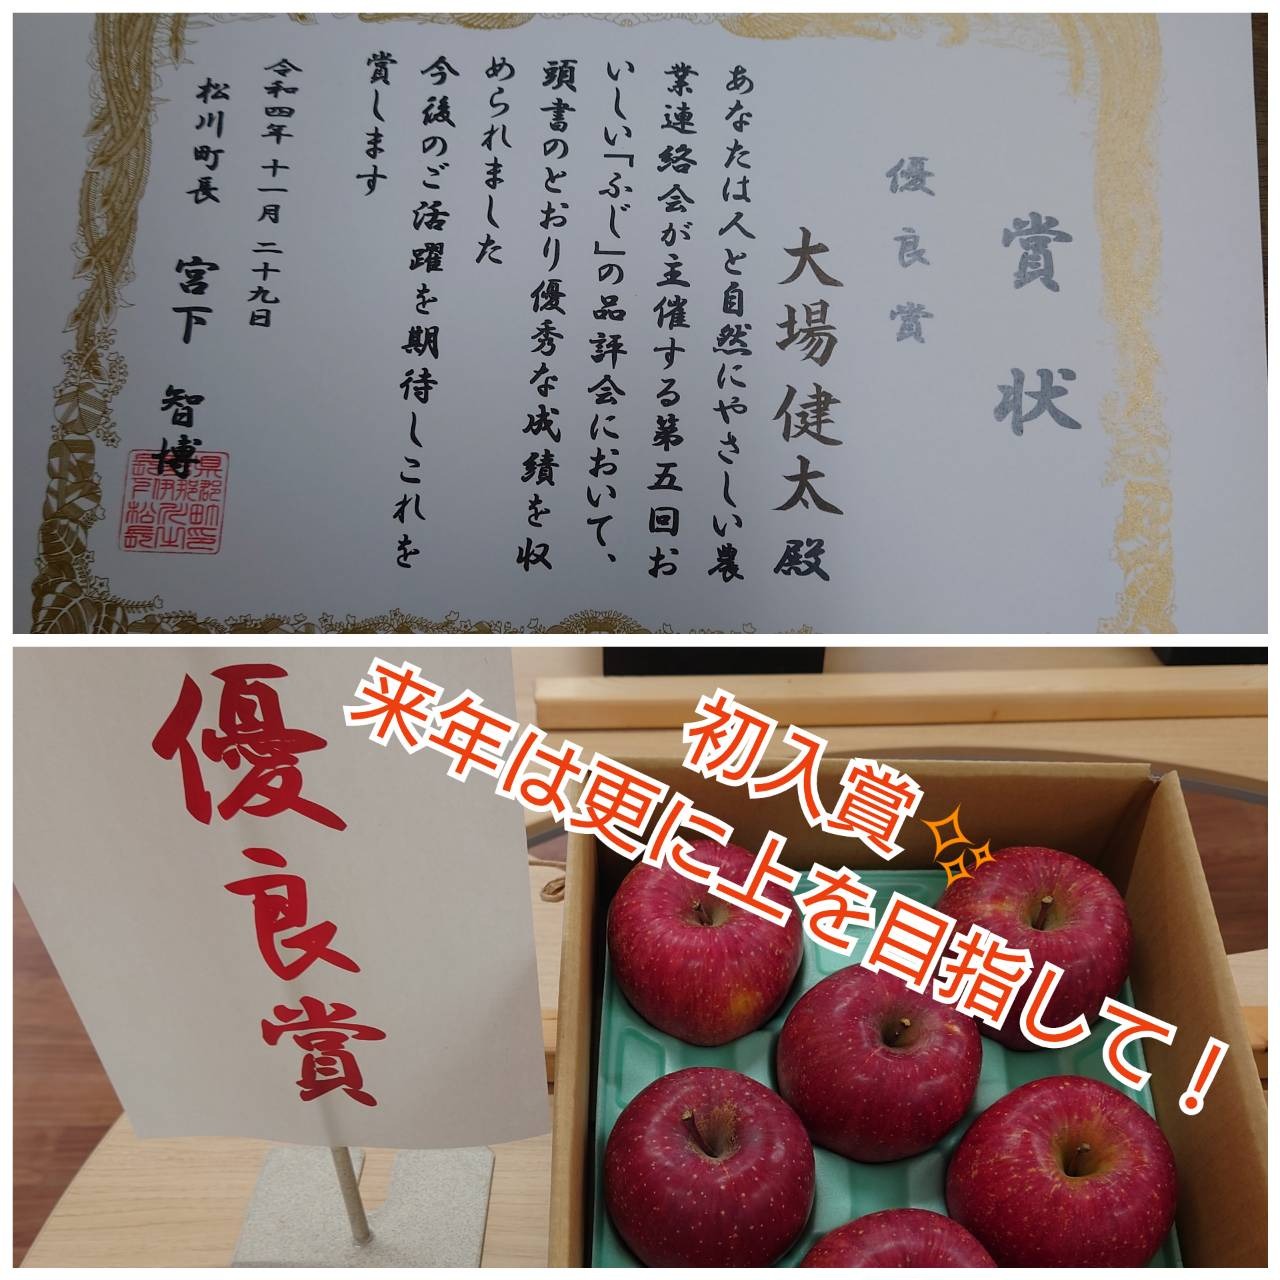 賞状
優良賞
大場健太殿
あなたは人と自然にやさしい農
業連絡会が主催する第五回お
いしい「ふじ」の品評会において、
頭書のとおり優秀な成績を収
められました
今後のご活躍を期待しこれを
賞します
令和四年十一月二十九日
松川町長 宮下智博
優良賞
初入賞✨
来年は更に上を目指して！